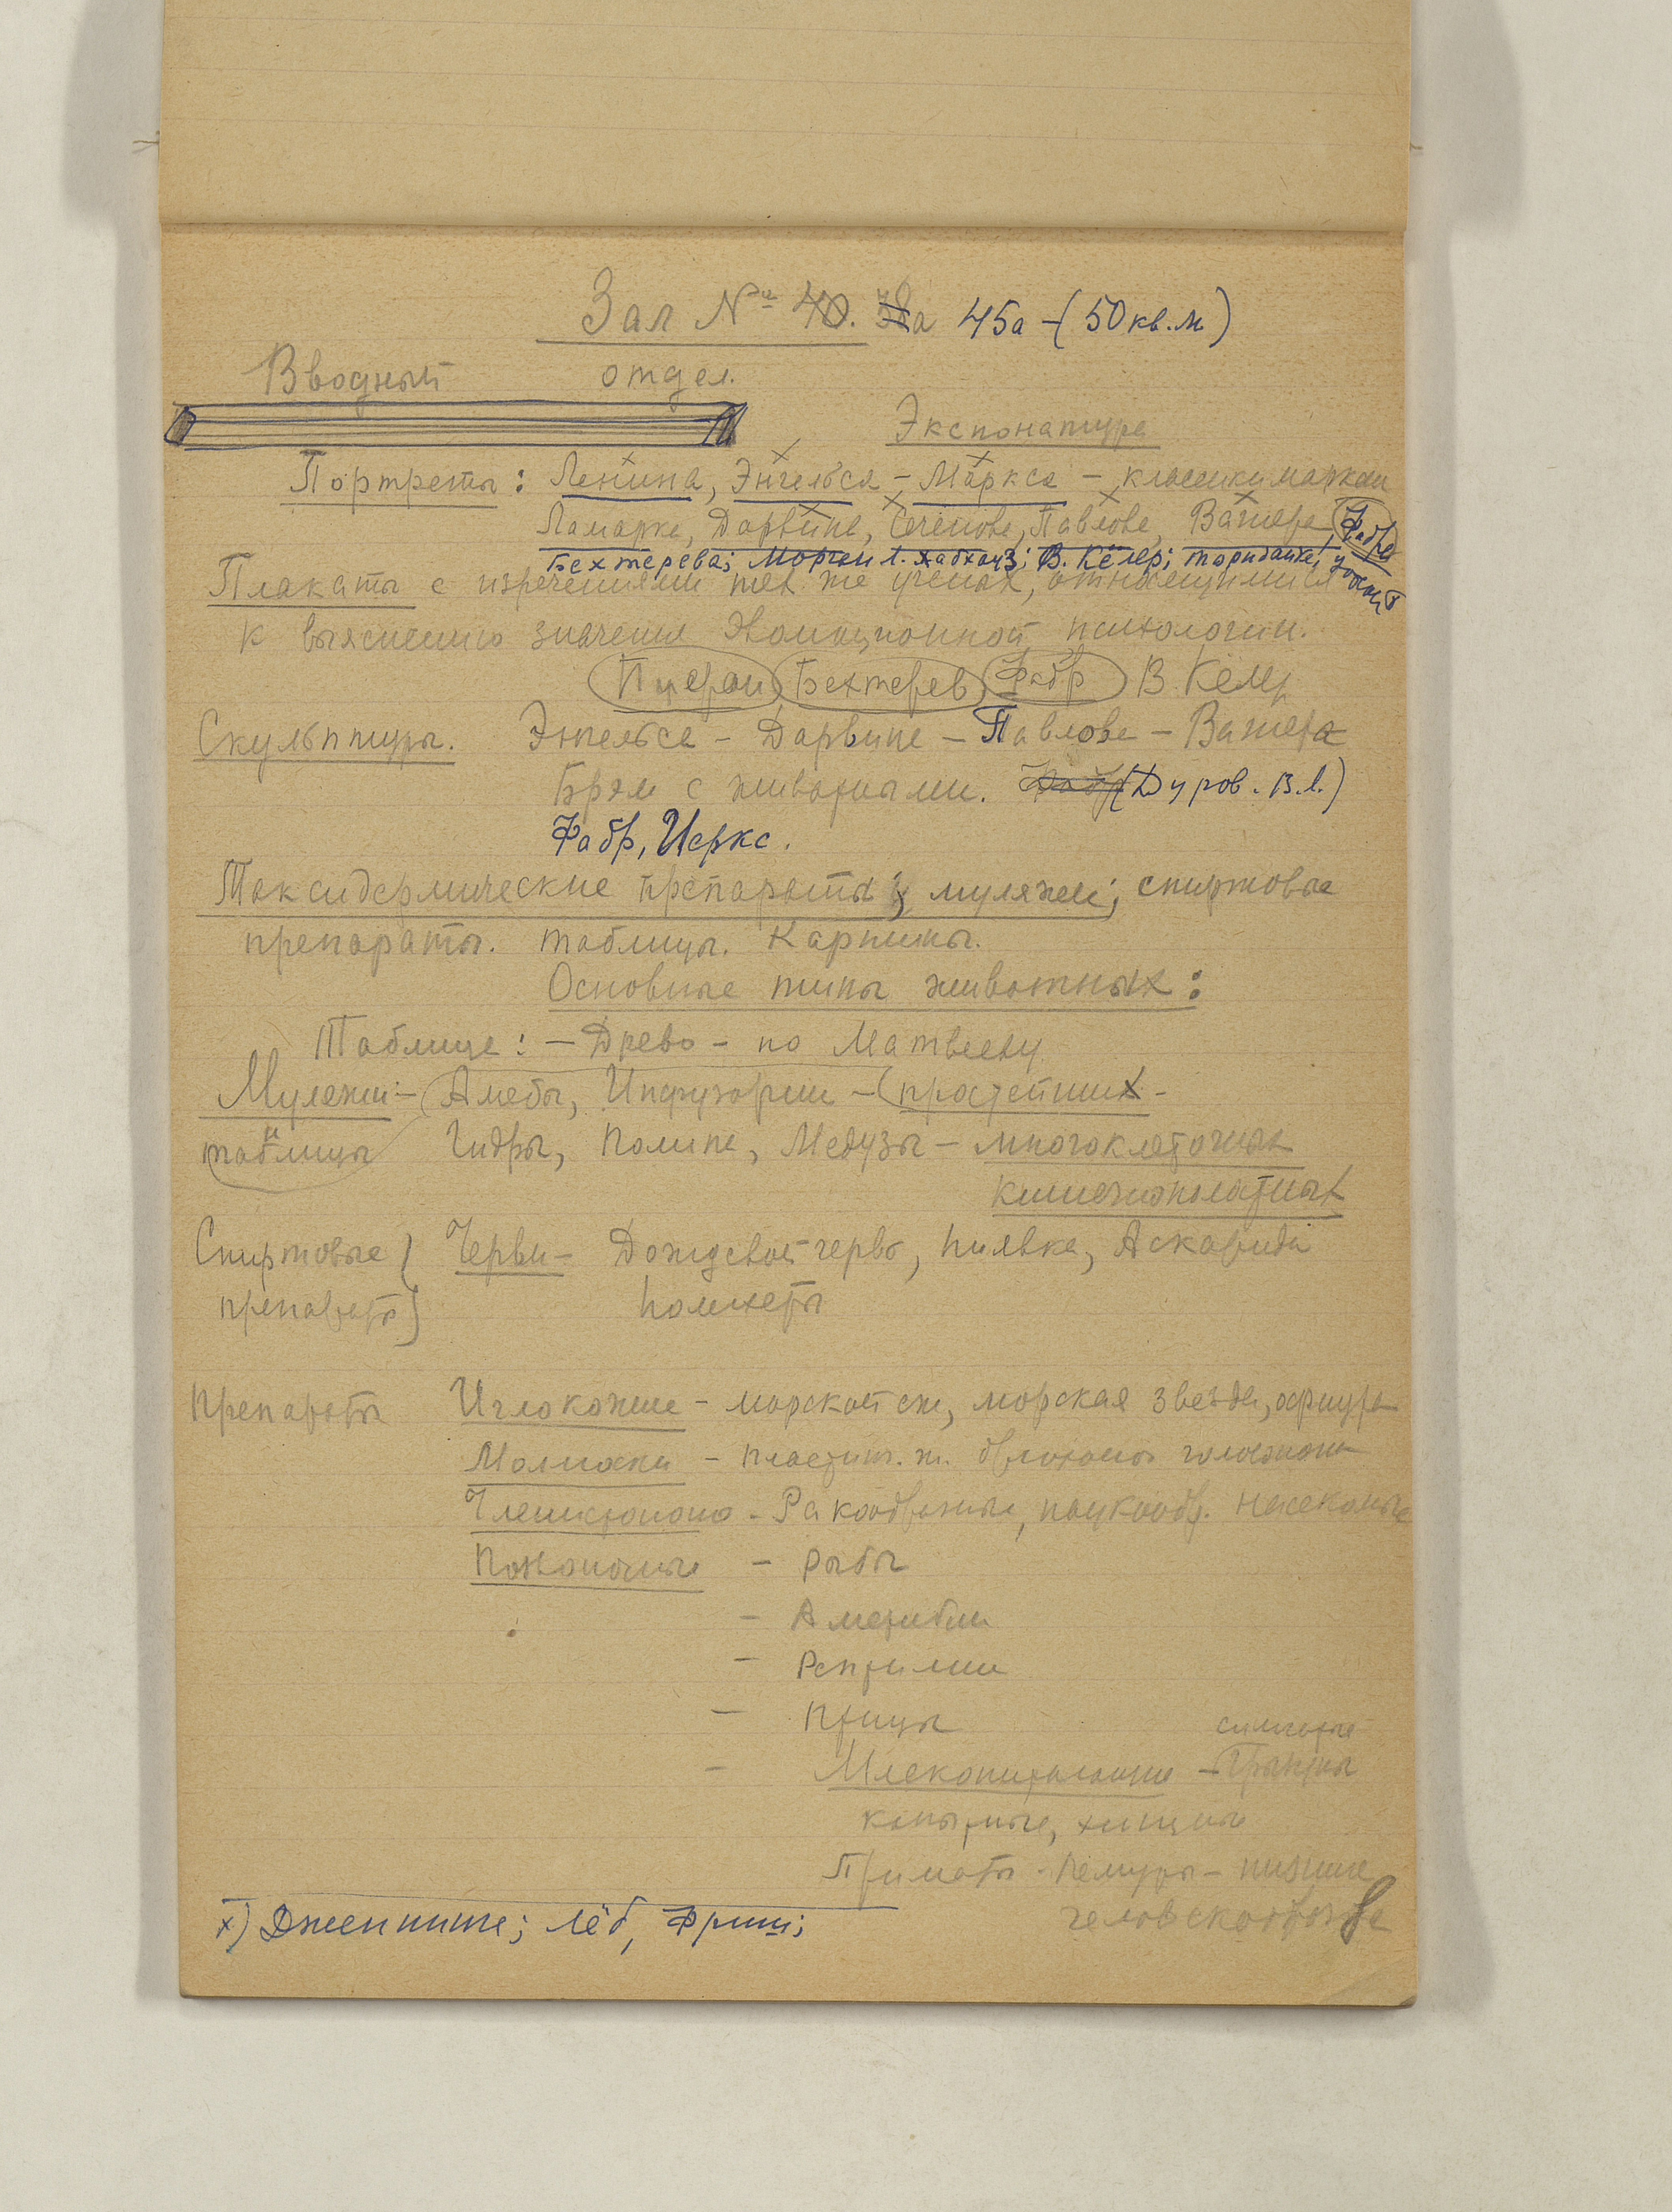 Зал № 40. а 45а – (50 кв. м)
Вводный отдел.
Экспонатура
Портреты: Ленина, Энгельса – Маркса – классики маркси
Ламарка, Дарвина, Сеченова, Павлова, Вагнера, Фабра
Бехтерева; Морган Л. Хабхауз; В. Кёлер; Торндайк;
Плакаты с изречениями тех же ученых, относящимися
к выяснению значения эволюционной психологии.
Бехтерев Фабр В Келер
Скульптуры. Энгельса – Дарвина – Павлова – Вагнера
Брэм с животными. Фабр (Дуров. В.Л.)
Фабр, Иеркс.
Таксидермические препараты; муляжи; спиртовые
препараты. таблицы. Картины.
Основные типы животных:
Таблица: – Древо – по Матвееву
Муляжи – Амебы, Инфузории – (простейших –
и
таблицы Гидры, Полипа, Медузы – многоклеточных
кишечнополостных
Спиртовые Черви – Дождевой червь, пиявка, Аскарида
препараты Полихеты
Препараты Иглокожие – морской еж, морская звезда, офиура
Моллюски –
Членистоногие – Ракообразные, паукообр. насекомые
Позвоночные – рыбы
– Амфибии
– Рептилии
– Птицы
сумчатые
– Млекопитающие – Грызуны
копытные, хищные
Приматы – Лемуры – низшие
человекообразные
х) Дженнингс; Лёб, Фриш;